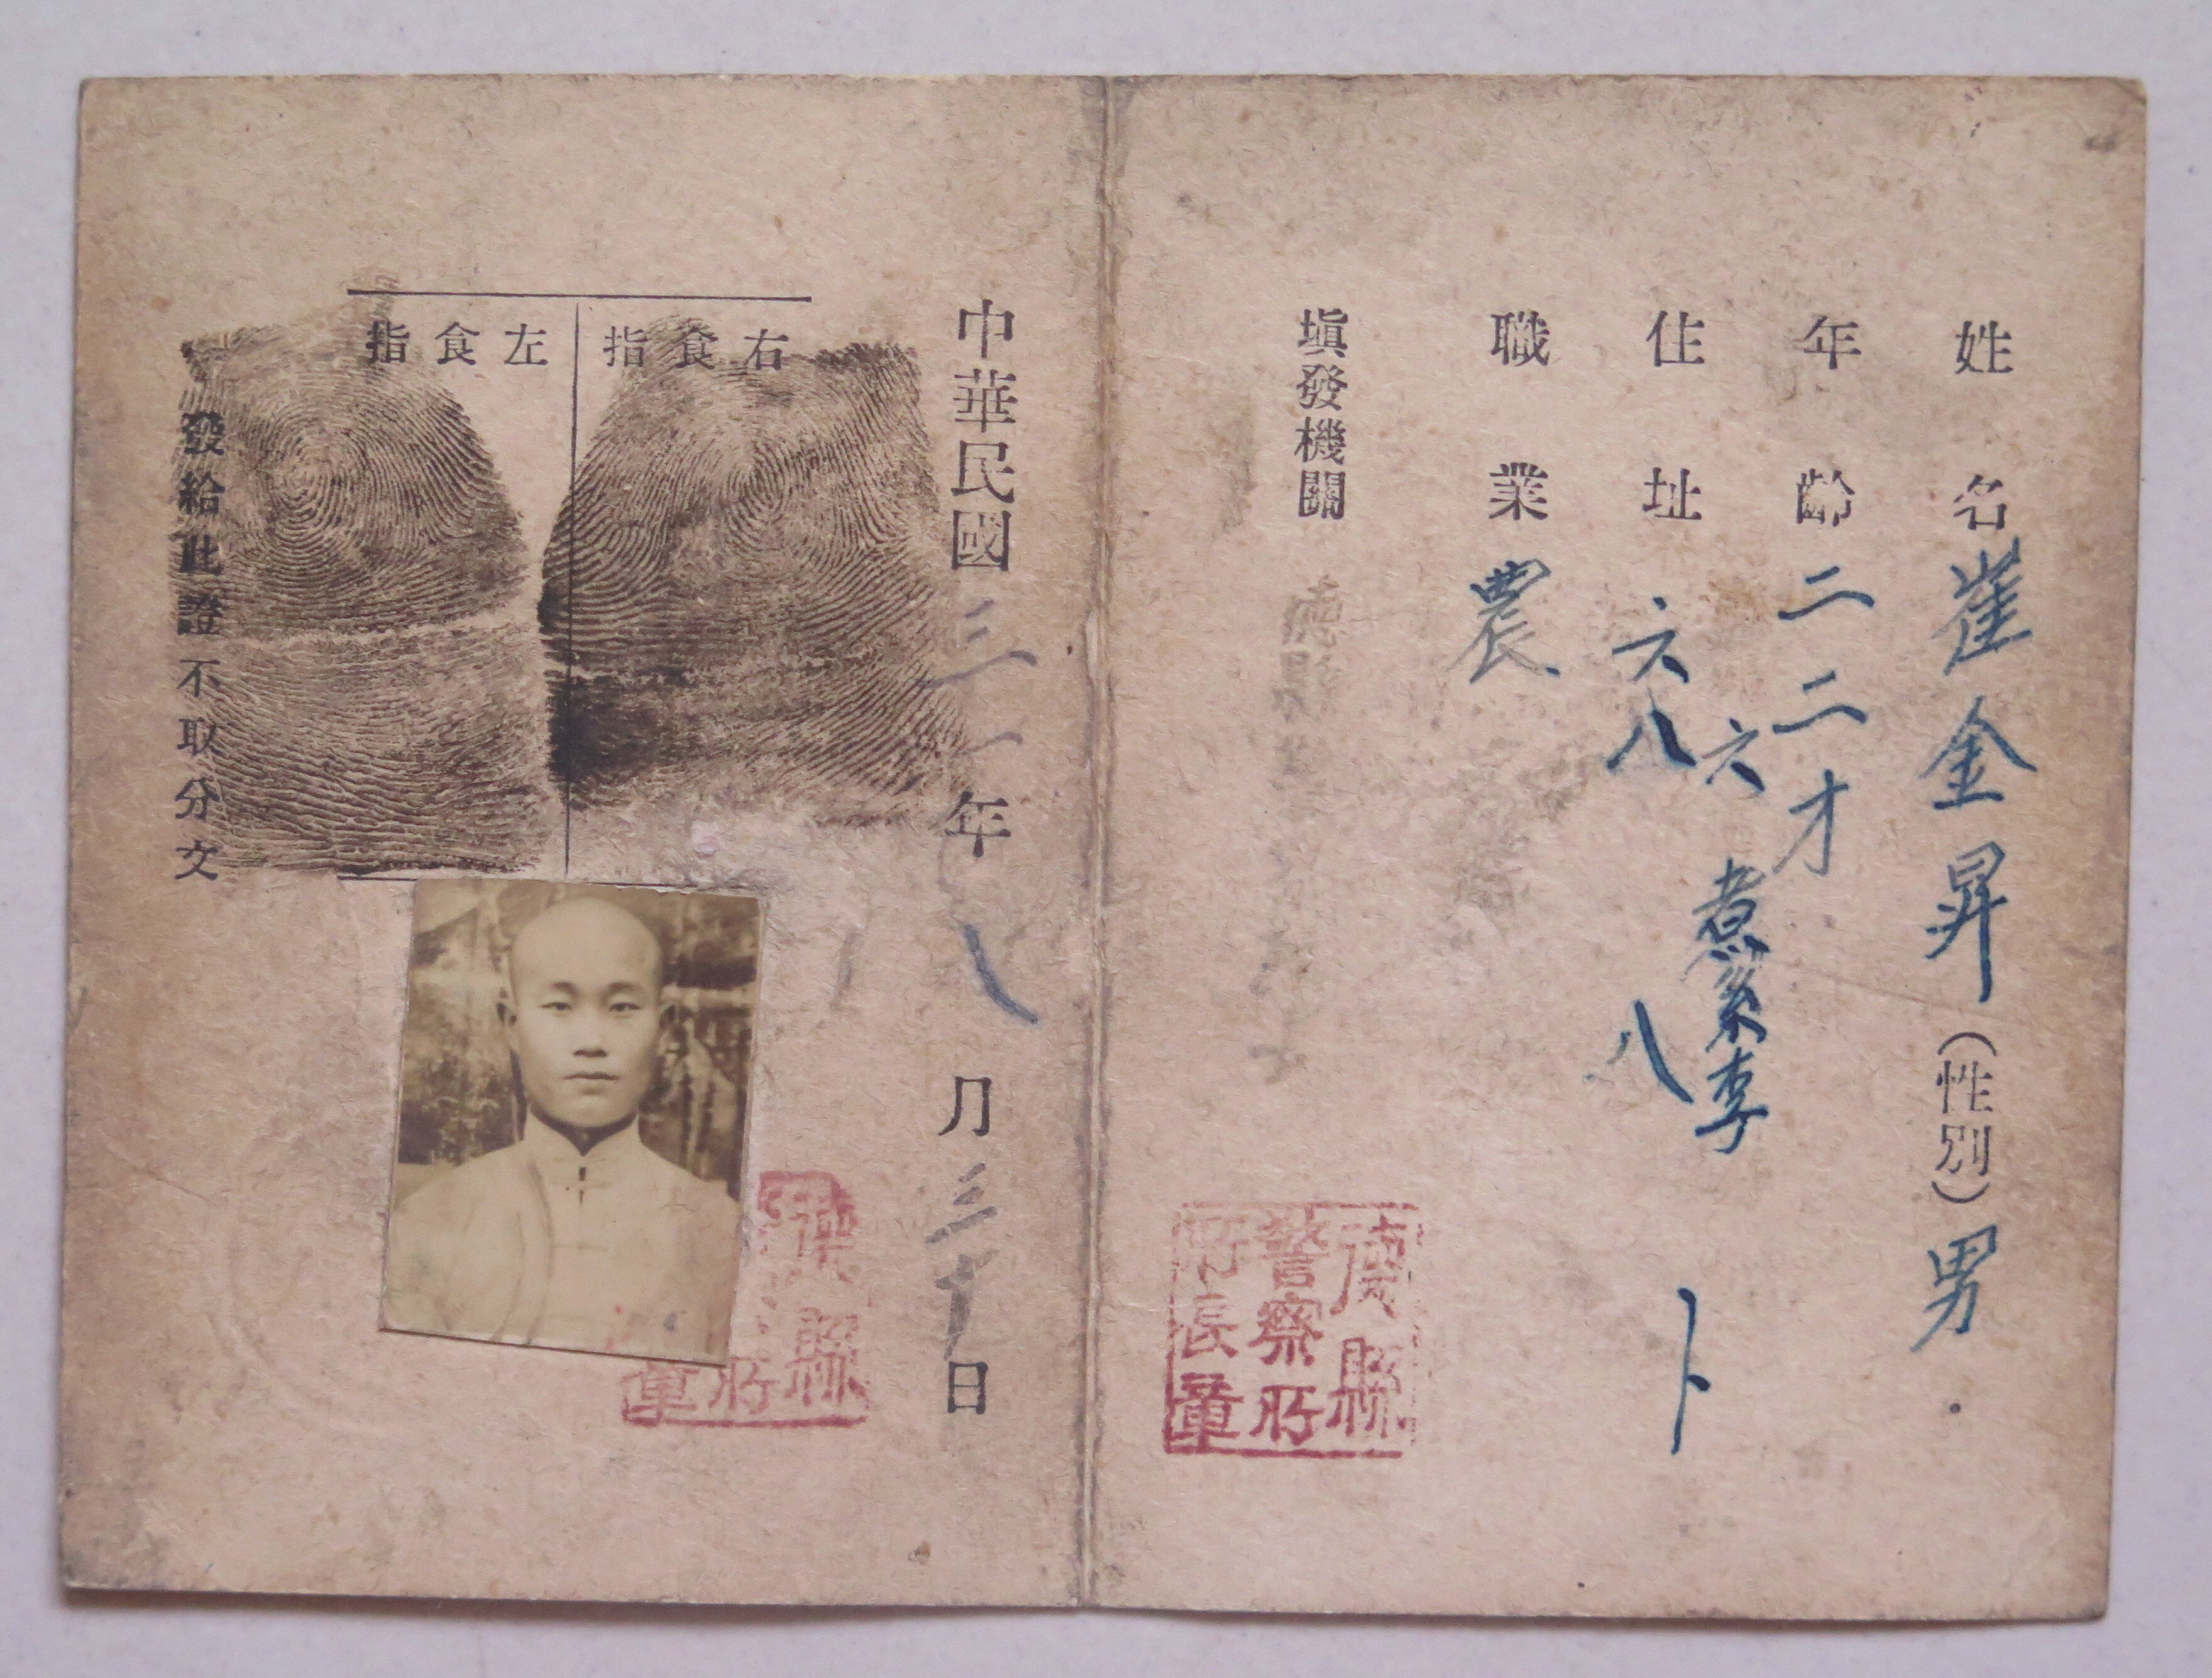 姓名崔金昇(性別)男
年齡二二才
住址六八
六煮粱李
八
卜
職業農
填發機關
德縣警察所所長章
中華民國三一年八月三十日
右食指
左食指
德縣
所
章
發給此證不取分文